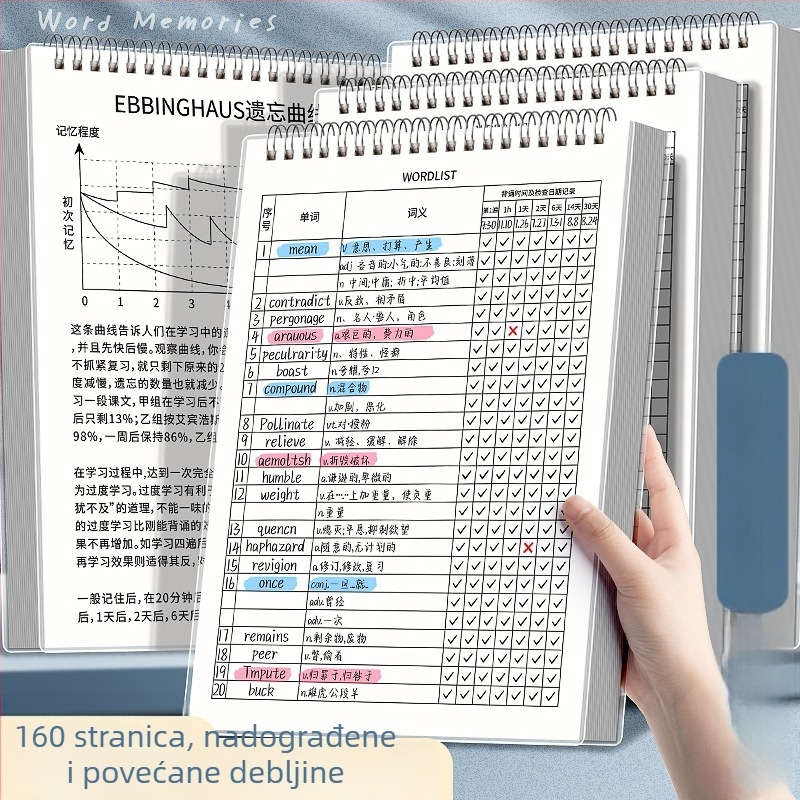 Word Memories
EBBINGHAUS遗忘曲线
记忆程度
初次记忆
0 1 2 3 4
这条曲线告诉人们在学习中的遗
,并且先快后慢。观察曲线,你会
不抓紧复习,就只剩下原来的2
度减慢,遗忘的数量也就减少。
习一段课文,甲组在学习后不
后只剩13%;乙组按艾宾浩斯
98%,一周后保持86%,乙组
在学习过程中,达到一次完全
为过度学习。过度学习有利于
犹不及”的道理,不能一味的
的过度学习比刚能背诵的效
果不再增加。如学习四遍后
再学习效果则适得其反,
一般记住后,在20分钟后
后,1天后,2天后,6天后
WORDLIST
序号 单词 词义 背诵时间及检查日期记录
第1遍 1h 1天 2天 6天 14天 30天
7.30 1.10 7.26 7.27 7.31 8.8 8.24
1 mean v 意思、打算、产生
adj 吝啬的;小气的;不善良;刻薄
n 中间;中庸; 折中;平均值
2 contradict v.反驳, 相矛盾
3 pergonage n. 名人·要人, 角色
4 arauous a.艰巨的, 费力的
5 peculrarity n. 特性、怪癖
6 boast n.夸耀,夸口
7 compound n.混合物
v.加剧, 恶化
8 Pollinate vt.对·授粉
9 relieve v. 减轻、缓解、解除
10 aemoltsh v.拆毁破坏
11 humble a.谦逊的,卑微的
12 weight v.在·····上加重量, 使负重
n.重量
13 quencn v.熄灭;平息,抑制欲望
14 haphazard a.随意的,无计划的
15 revigion a.修订,修改,复习
16 once conj.一旦...就...
adv.曾经
adv.一次
17 remains n.剩余物,废物
18 peer v.瞥,偷看
19 Tmpute v.归罪于,归咎于
20 buck n.雄鹿公段羊
160 stranica, nadograđene
i povećane debljine